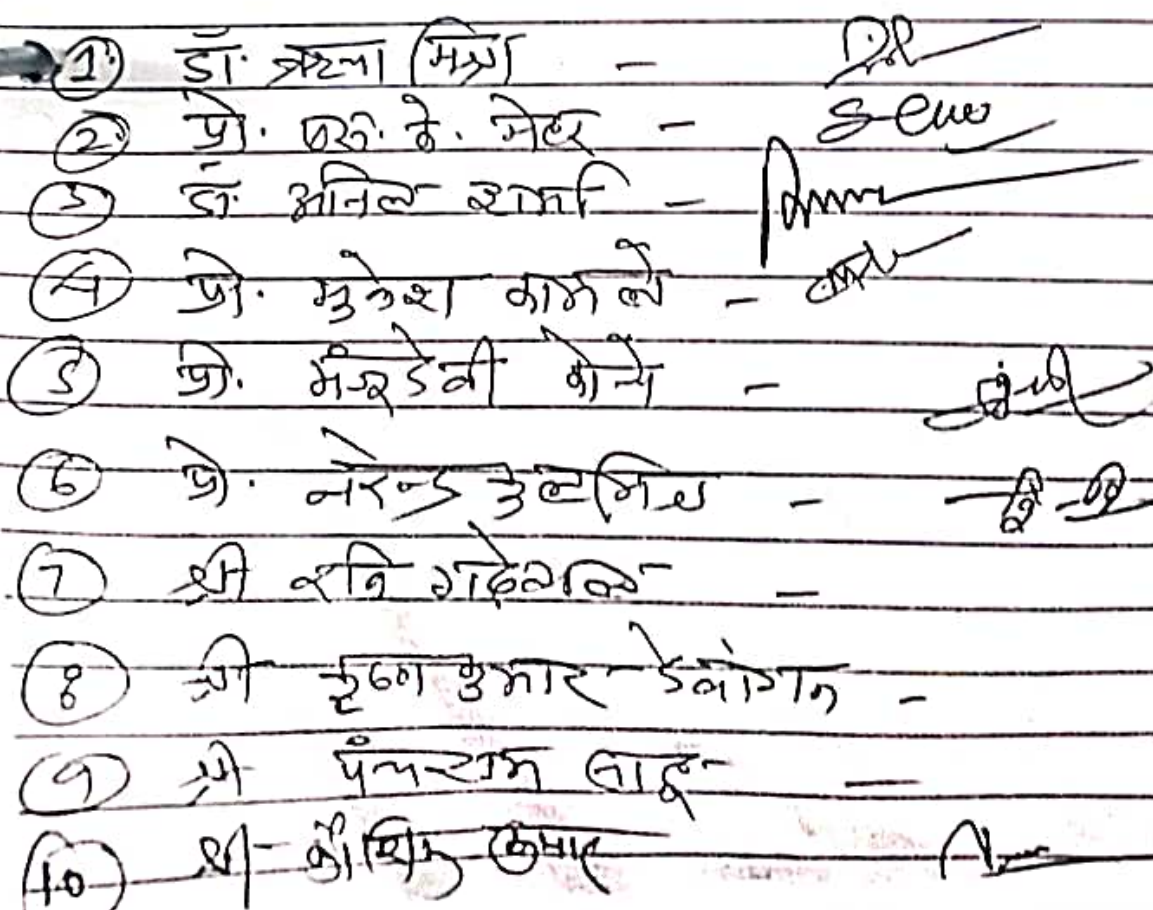 ① डॉ. सरला मिश्रा -
② प्रो. एस. के. मेहर -
③ डॉ. अनिल शर्मा -
④ प्रो. मुकेश कामले -
⑤ प्रो. मंजूदेवी कोचे -
⑥ प्रो. नरेन्द्र कुलमित्र -
⑦ श्री रवि गढ़ेवाल -
⑧ श्री कृष्णकुमार देवांगन -
⑨ श्री पंचराम साहू -
⑩ श्री कौशिक कुमार